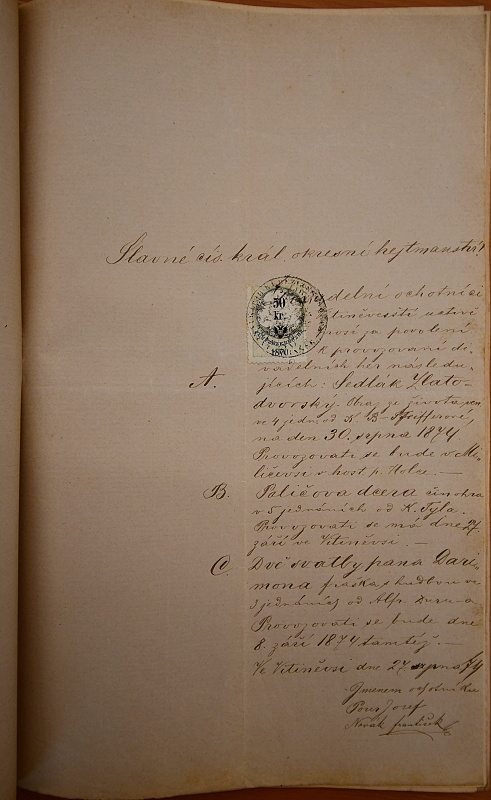 Slavné cís. král. okresní hejtmanství!
50
kr.
1870
delní ochotníci
tiněvesští uctivě
prosí za povolení
k provozování di-
vadelních her následu-
A. jících: Sedlák Zlato-
dvorský. Obraz ze života
ve 4 jedn. od K. B-Pfeifferové,
na den 30. srpna 1874
Provozovati se bude v Mi-
ličevsi v host. p. Holce. —
B. Paličova dcera činohra
v 5 jednáních od K. Tyla.
Provozovati se má dne 27.
září ve Vitiněvsi. —
C. Dvě svatby pana Dari-
mona fraška s hudbou ve
3 jednáních od Alfr.
Provozovati se bude dne
8. září 1874 tamtéž. —
Ve Vitiněvsi dne 27 srpna 74
Jmenem ochotníků
Pour Josef
Novák František